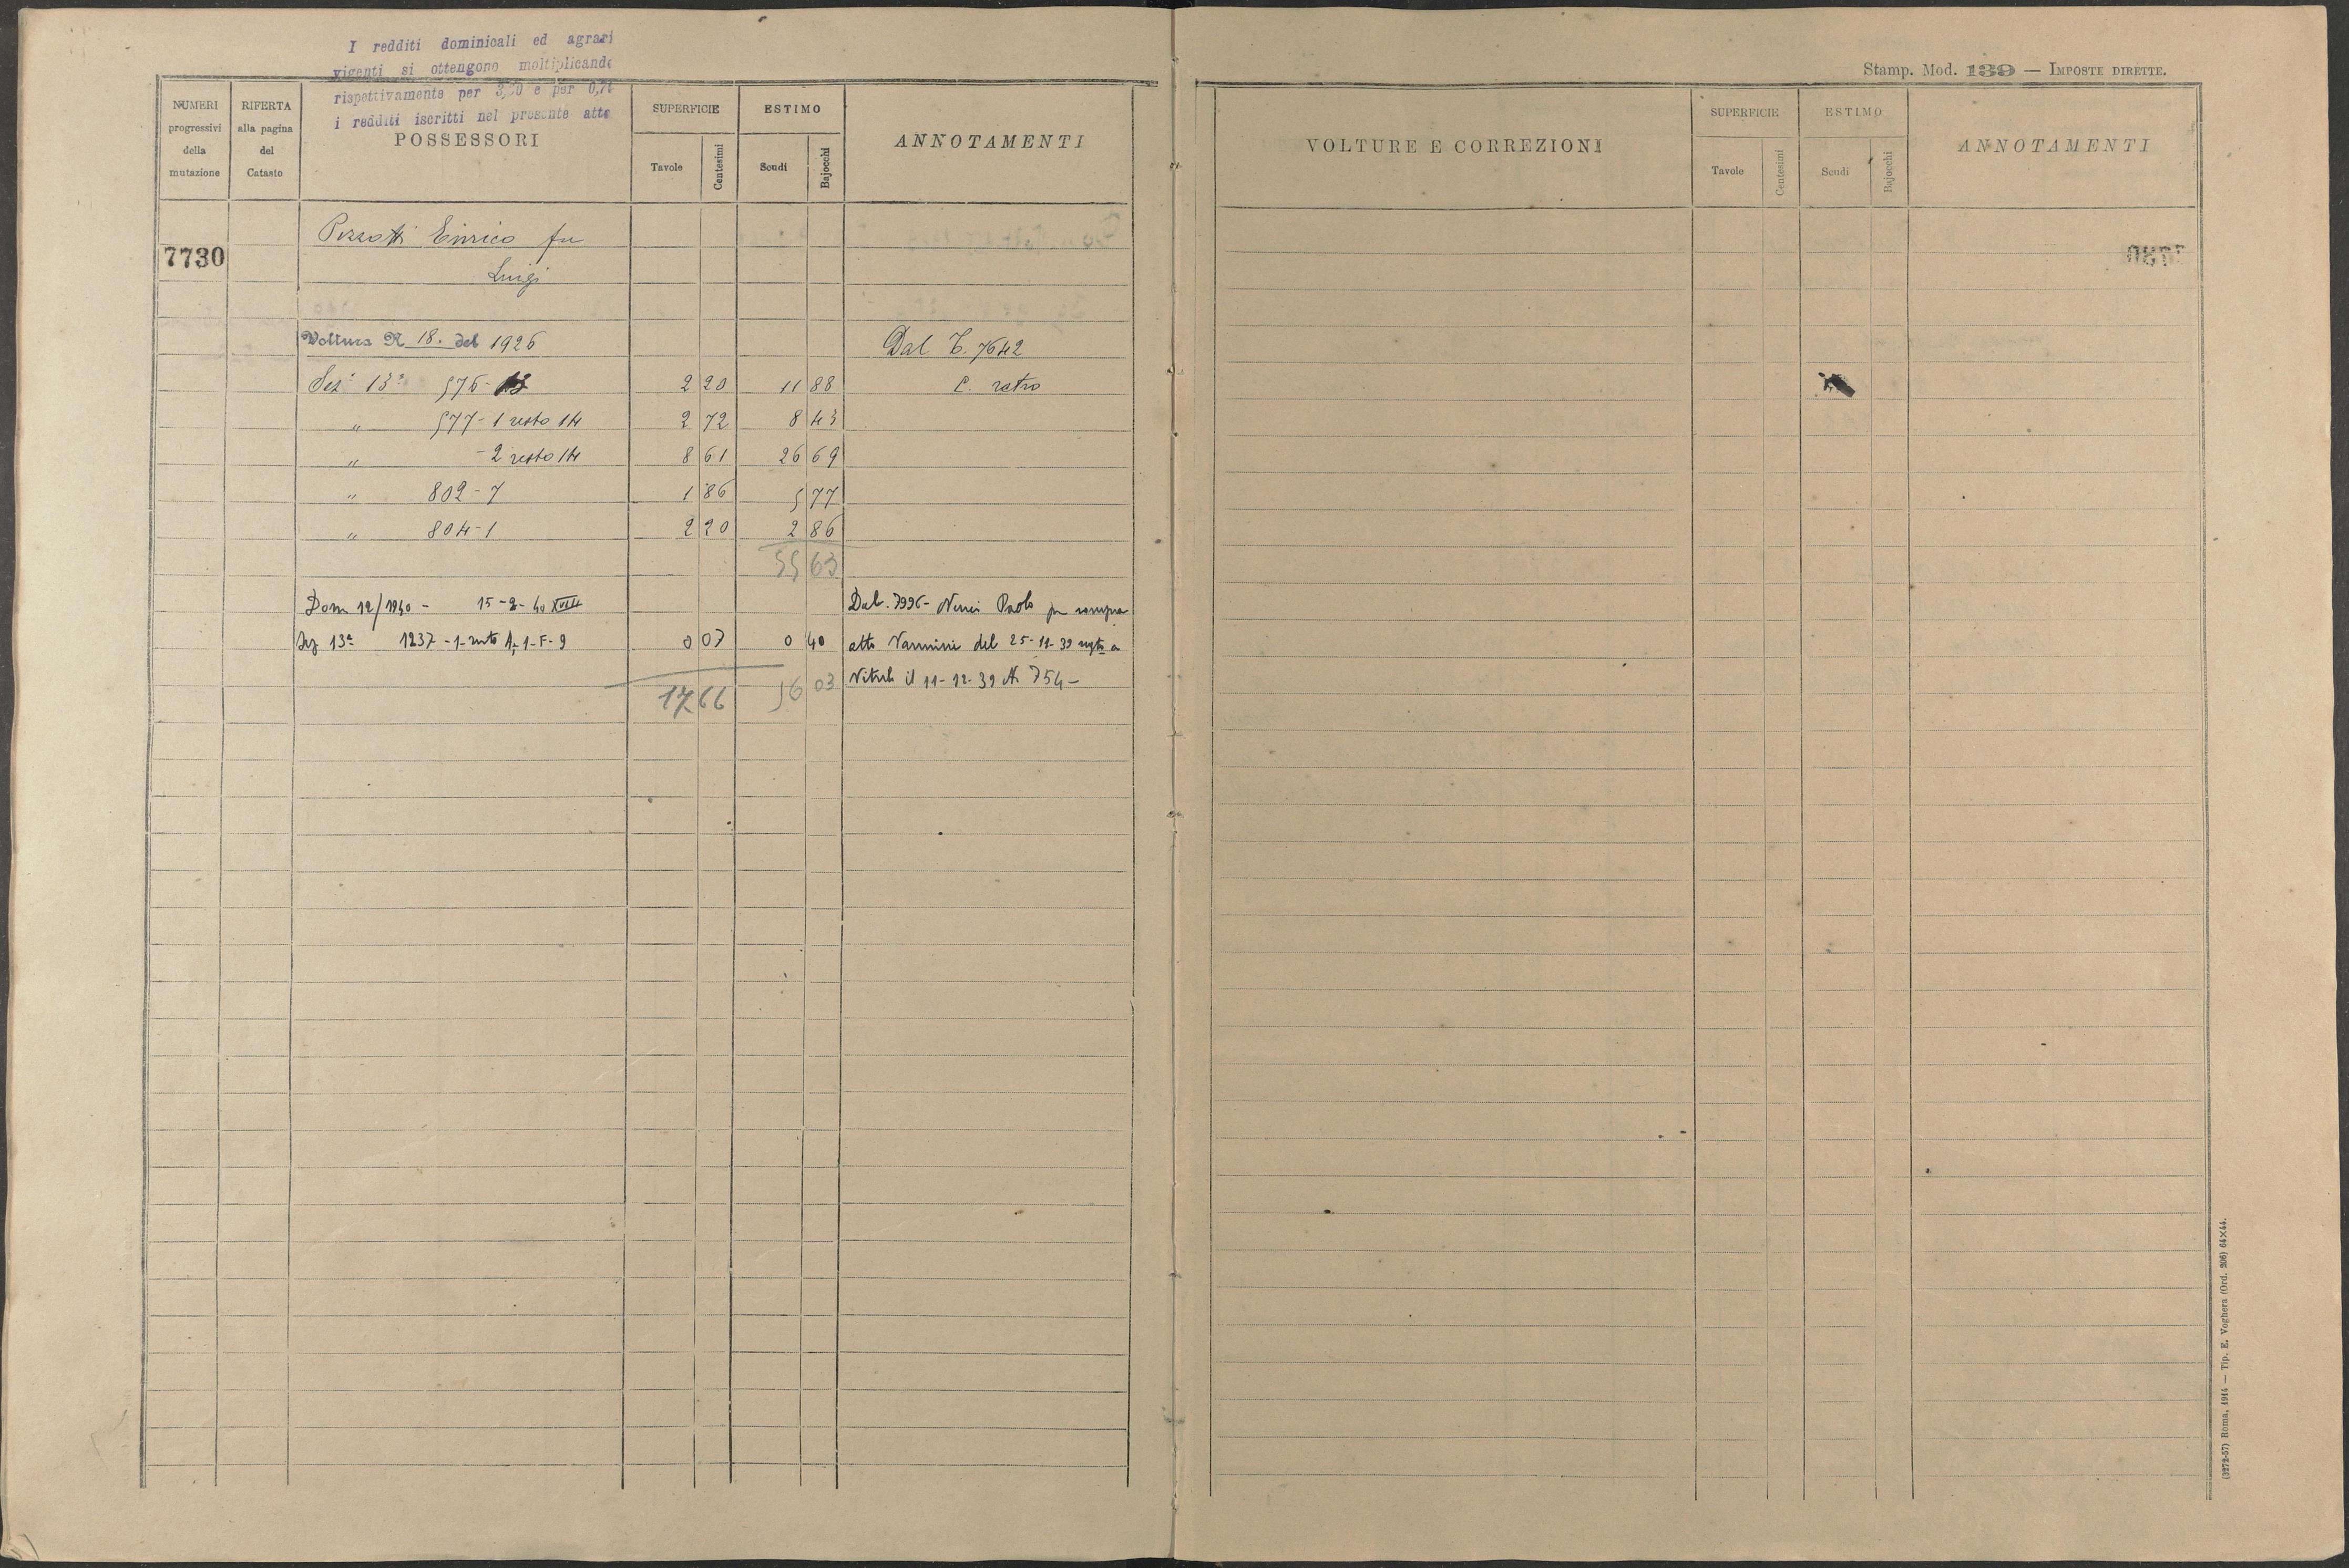 I redditi dominicali ed agrari
vigenti si ottengono moltiplicando
rispettivamente per e per
i redditi iscritti nel presente atto
NUMERI progressivi della mutazione
RIFERTA alla pagina del Catasto
POSSESSORI
SUPERFICIE
Tavole
Centesimi
ESTIMO
Scudi
Bajocchi
ANNOTAMENTI
7730
Pezzotti Enrico fu
Luigi
Voltura N 18. del 1926 Dal T. 7642
Sez. 13ª 576- 2 20 11 88 C. retro
" 577-1 resto 14 2 72 8 43
" -2 resto 14 8 61 26 69
" 802-7 1 86 5 77
" 804-1 2 20 2 86
55 63
Dom 12/1940 - 15-2-40 XVIII Dal. 7996- Nenci Paolo per compra
Sez 13ª 1237-1- 0 07 0 40 atto Vannini del 25-11-39 regto a
17 66 56 03 Viterbo il 11-12-39 N. 754-
Stamp. Mod. 139 — IMPOSTE DIRETTE.
VOLTURE E CORREZIONI
SUPERFICIE
Tavole
Centesimi
ESTIMO
Scudi
Bajocchi
ANNOTAMENTI
(3272-57) Roma, 1914 — Tip. E. Voghera (Ord. 206) 64×44.